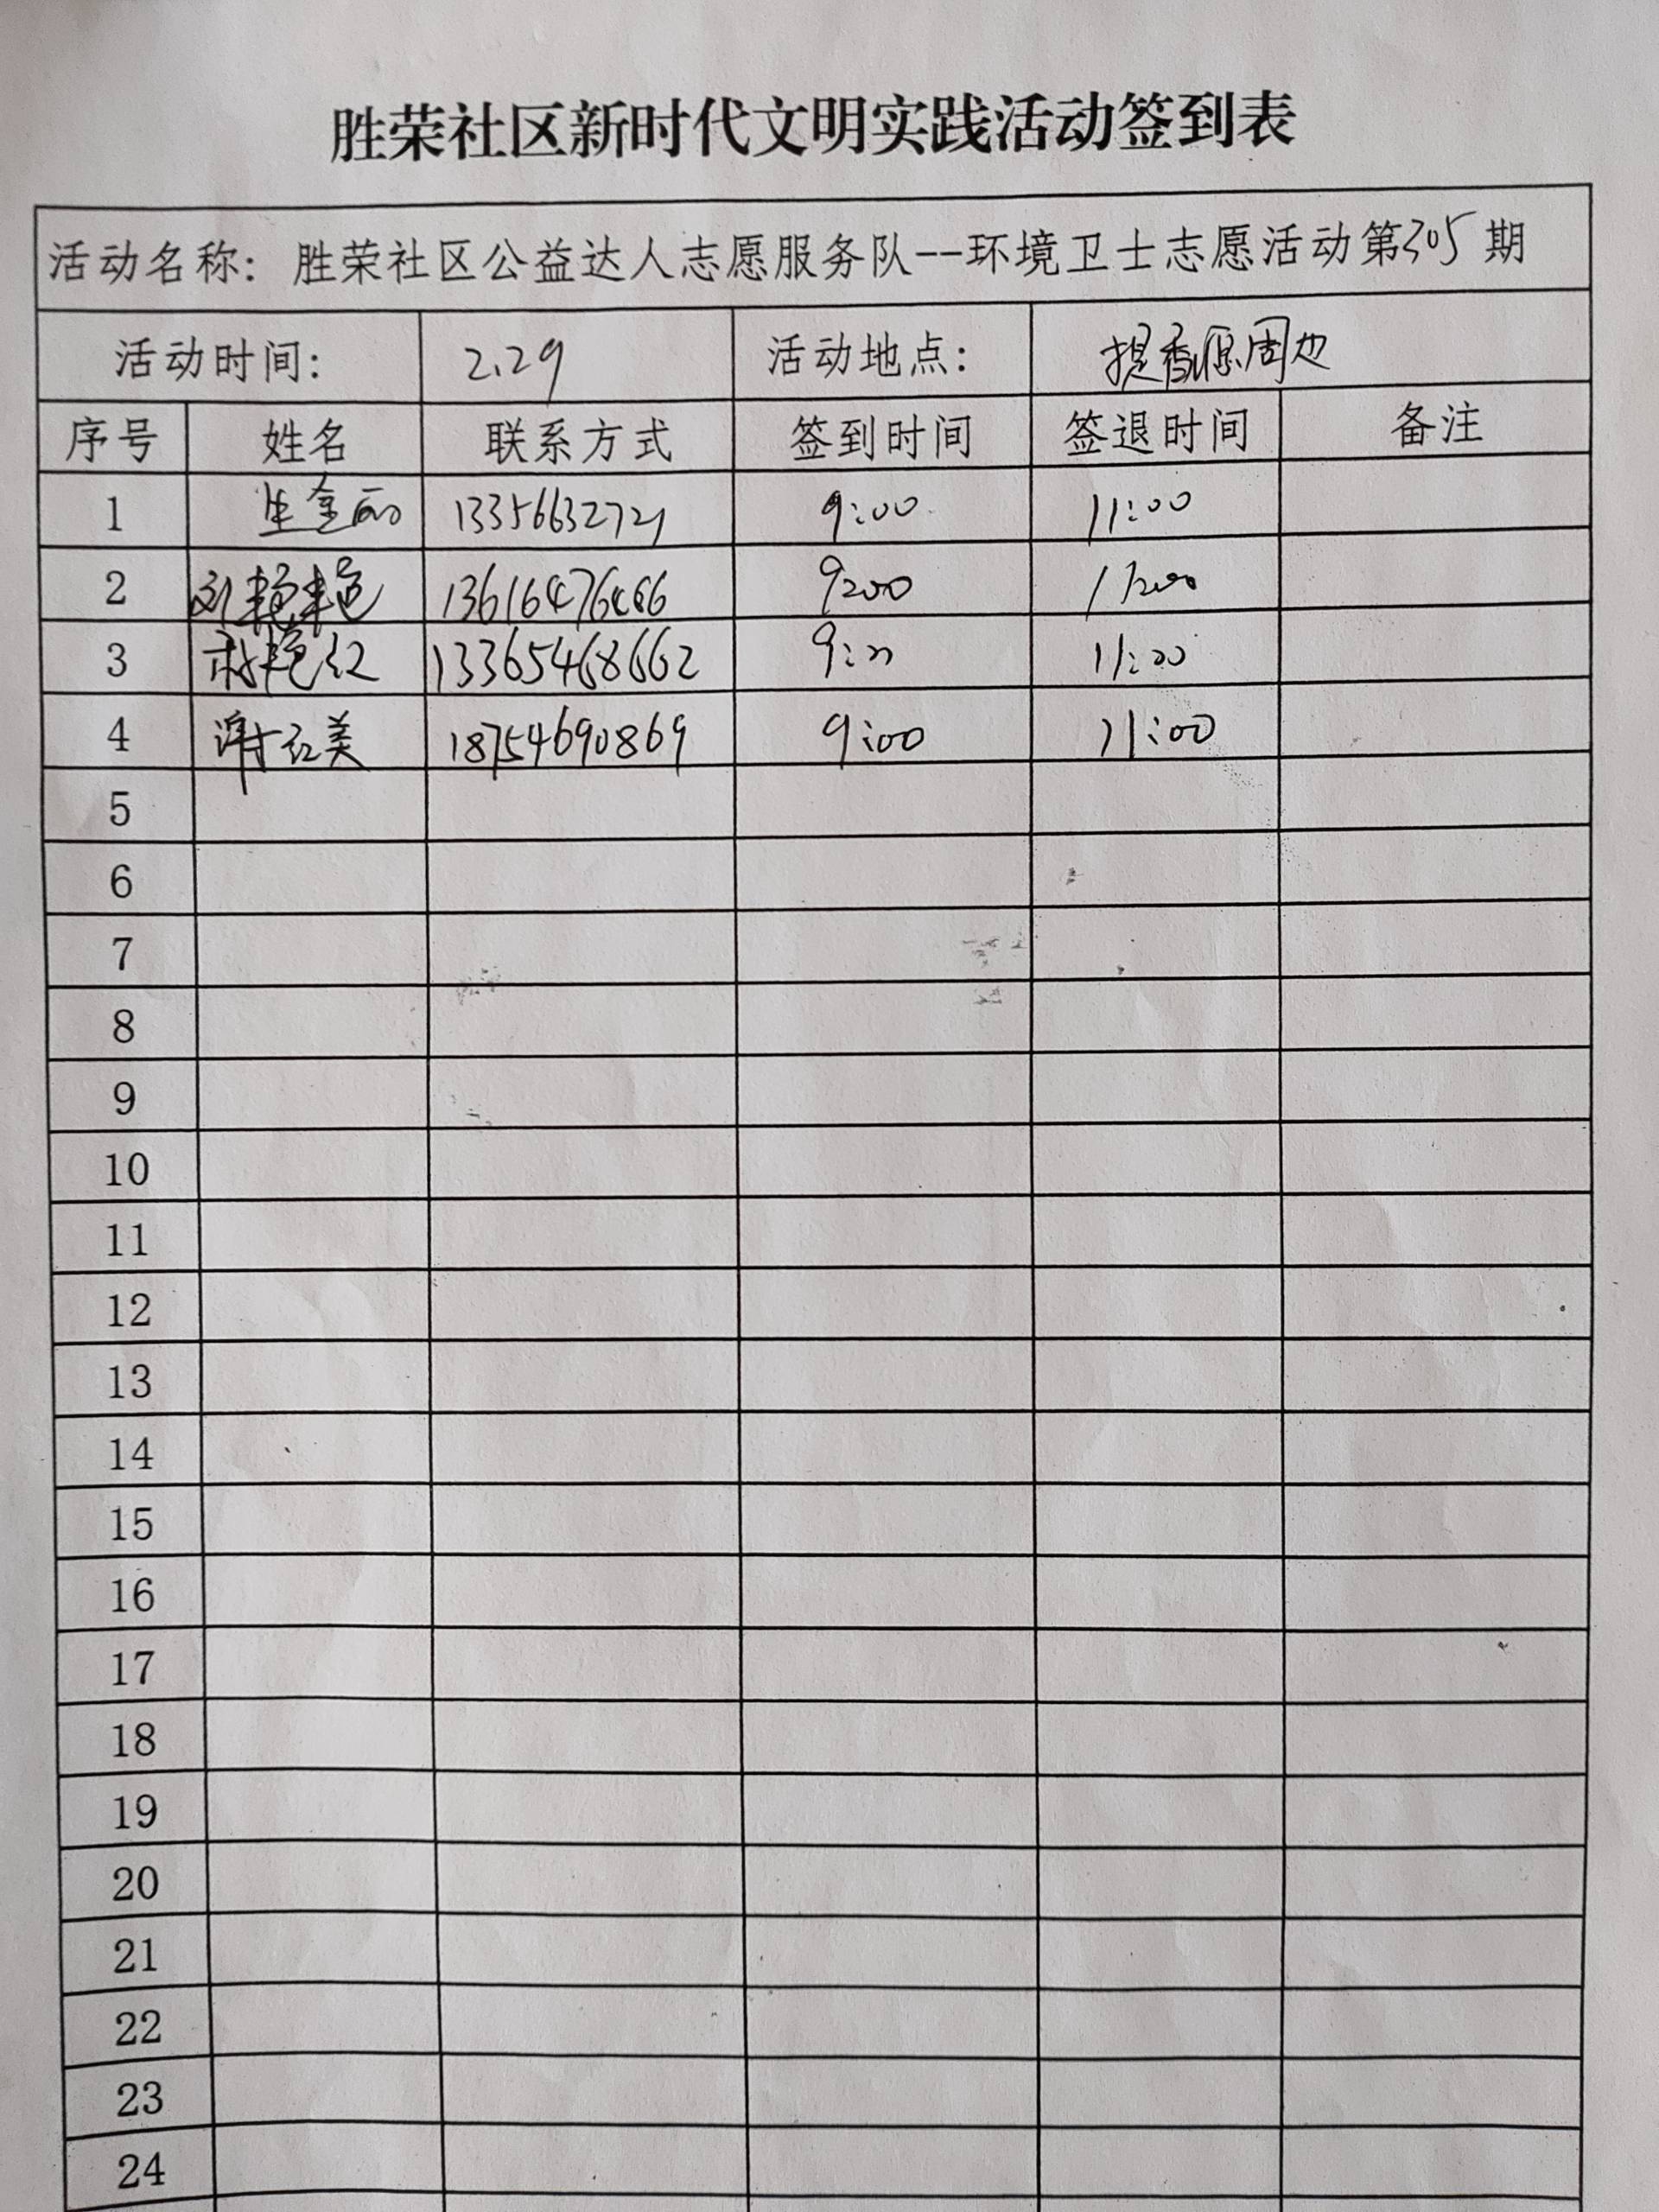 胜荣社区新时代文明实践活动签到表
活动名称：胜荣社区公益达人志愿服务队--环境卫士志愿活动第305期
活动时间： 2.29 活动地点： 提香源周边
序号 姓名 联系方式 签到时间 签退时间 备注
1 9:00 11:00
2 刘艳艳 9:00 11:00
3 艳红 13365468662 9:00 11:00
4 谢红美 18754690869 9:00 11:00
5
6
7
8
9
10
11
12
13
14
15
16
17
18
19
20
21
22
23
24